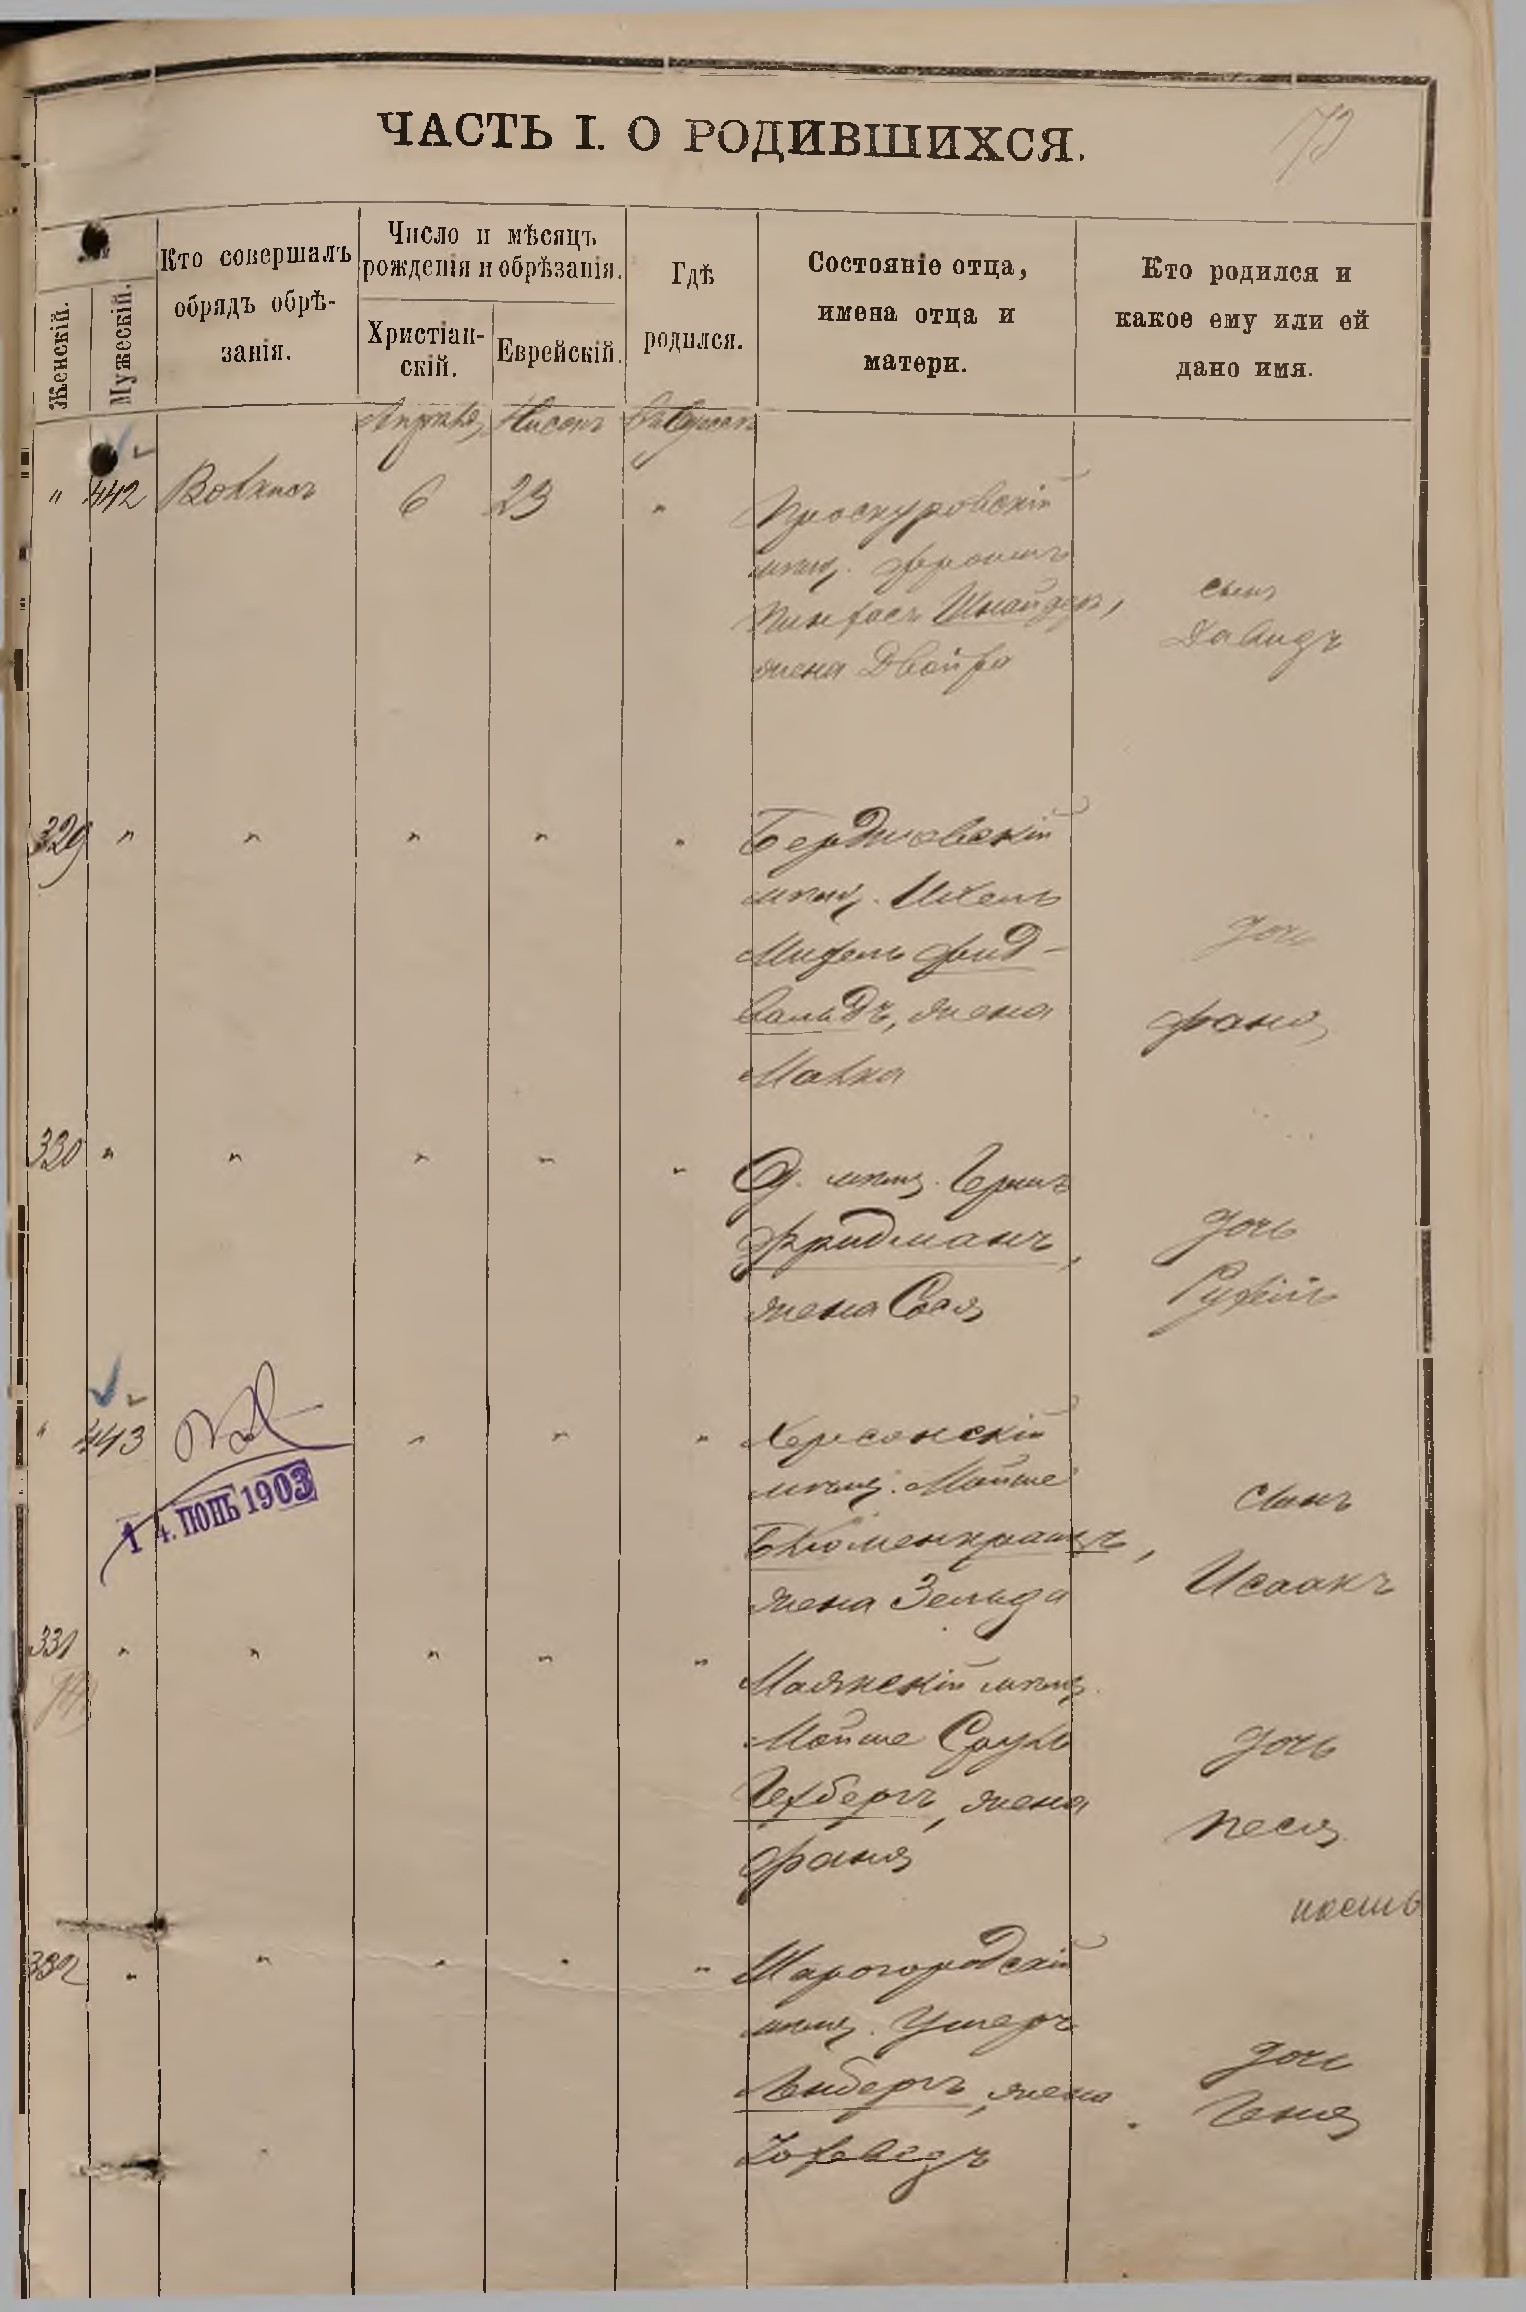 73
ЧАСТЬ I. О РОДИВШИХСЯ.
Женскій.
Мужескій.
Кто совершалъ
обрядъ обрѣ-
занія.
Число и мѣсяцъ
рожденія и обрѣзанія.
Христіан-
скій.
Еврейскій.
Гдѣ
родился.
Состояніе отца,
имена отца и
матери.
Кто родился и
какое ему или ей
дано имя.
Апрѣля Нисонъ
" 442 6 23 "
Проскуровскій
мѣщ. Фроимъ
Пинхасъ Шнайдеръ,
жена Двойра
сынъ
Давидъ
329 " " " " "
Бердичевскій
мѣщ. Ихель
Михель Фид-
вальдъ, жена
Малка
дочь
Фаня
330 " " " " "
О. мѣщ. Гершъ
Фридманъ,
жена Сося
дочь
Рухель
" 443 " " "
14. ІЮНЬ 1903
Херсонскій
мѣщ. Мойше
Блюменкранцъ,
жена Зельда
сынъ
Исаакъ
331 " " " " "
Маякскій мѣщ.
Мойше Сруль
Гехбергъ, жена
Фаня
дочь
Песя
332 " " " " "
Шарогородскій
мѣщ. Ушеръ
жена
Хова
дочь
Геня